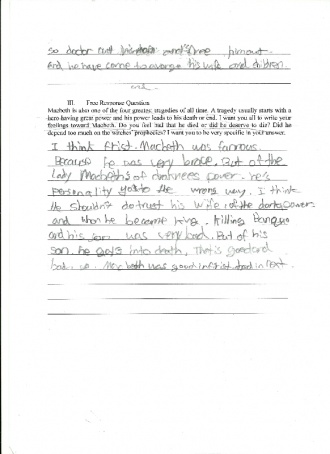 so doctor and his and three him out.
And he have come to avenge his wife and children.
end
III. Free Response Question
Macbeth is also one of the four greatest tragedies of all time. A tragedy usually starts with a
hero having great power and his power leads to his death or end. I want you all to write your
feelings toward Macbeth. Do you feel bad that he died or did he deserve to die? Did he
depend too much on the witches' prophecies? I want you to be very specific in your answer.
I think frist. Macbeth was famous.
Because he was very brave. But of the
Lady Macbeths of darknees power. he's
personality goes to the wrong way. I think
He shouldn't do trust his wife, of the dark powers
and when he became king. Killing Banquo
and his son was very bad. But of his
son. he goes into death, That's good and
bad. so Macbeth was good in frist bad in